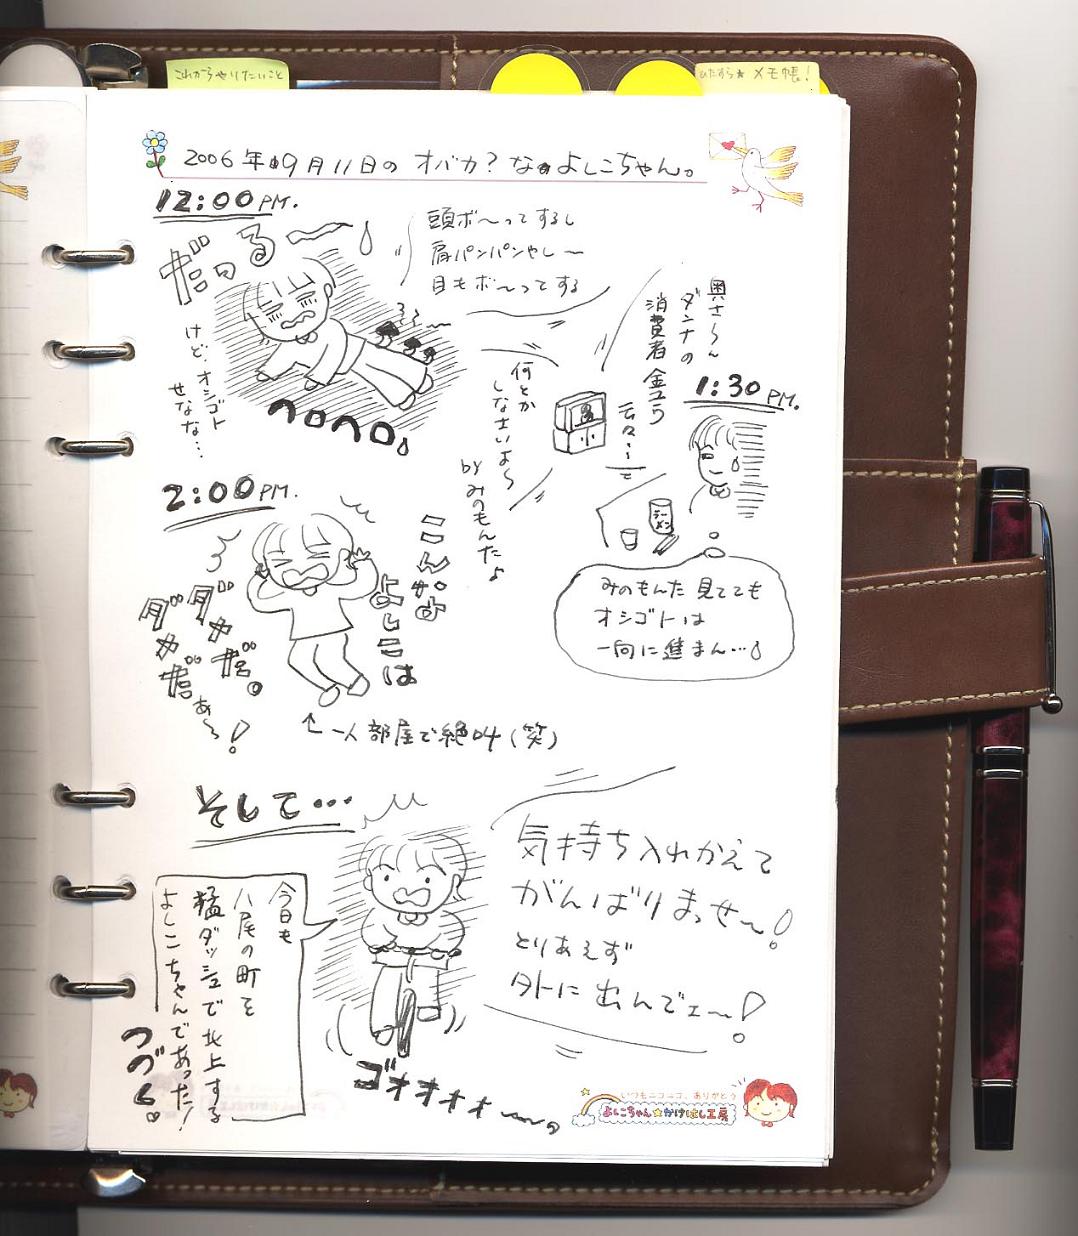 これからやりたいこと
ひたすら★メモ帳!
2006年9月11日の オバカ?な よしこちゃん。
12:00PM.
だっるー
頭ボ〜ってするし
肩パンパンやし〜
目もボ〜ってする
けど…オシゴト
せなな…
ヘロヘロ
1:30PM.
奥さ〜ん
ダンナの
消費者金ユウ
云々…
何とか
しなさいよ〜
by みのもんた♪
ラーメン
みのもんた見てても
オシゴトは
一向に進まん…
2:00PM.
こんな
よしこは
ダメだ。
ダメだぁ〜!
↑一人部屋で絶叫(笑)
そして…
気持ち入れかえて
がんばりまっせ〜!
とりあえず
外に出んでェ〜!
今日も
八尾の町を
猛ダッシュで北上する
よしこちゃんであった!
つづく。
ゴォォォォ〜。
いつもニコニコ、ありがとう
よしこちゃん★かけはし工房